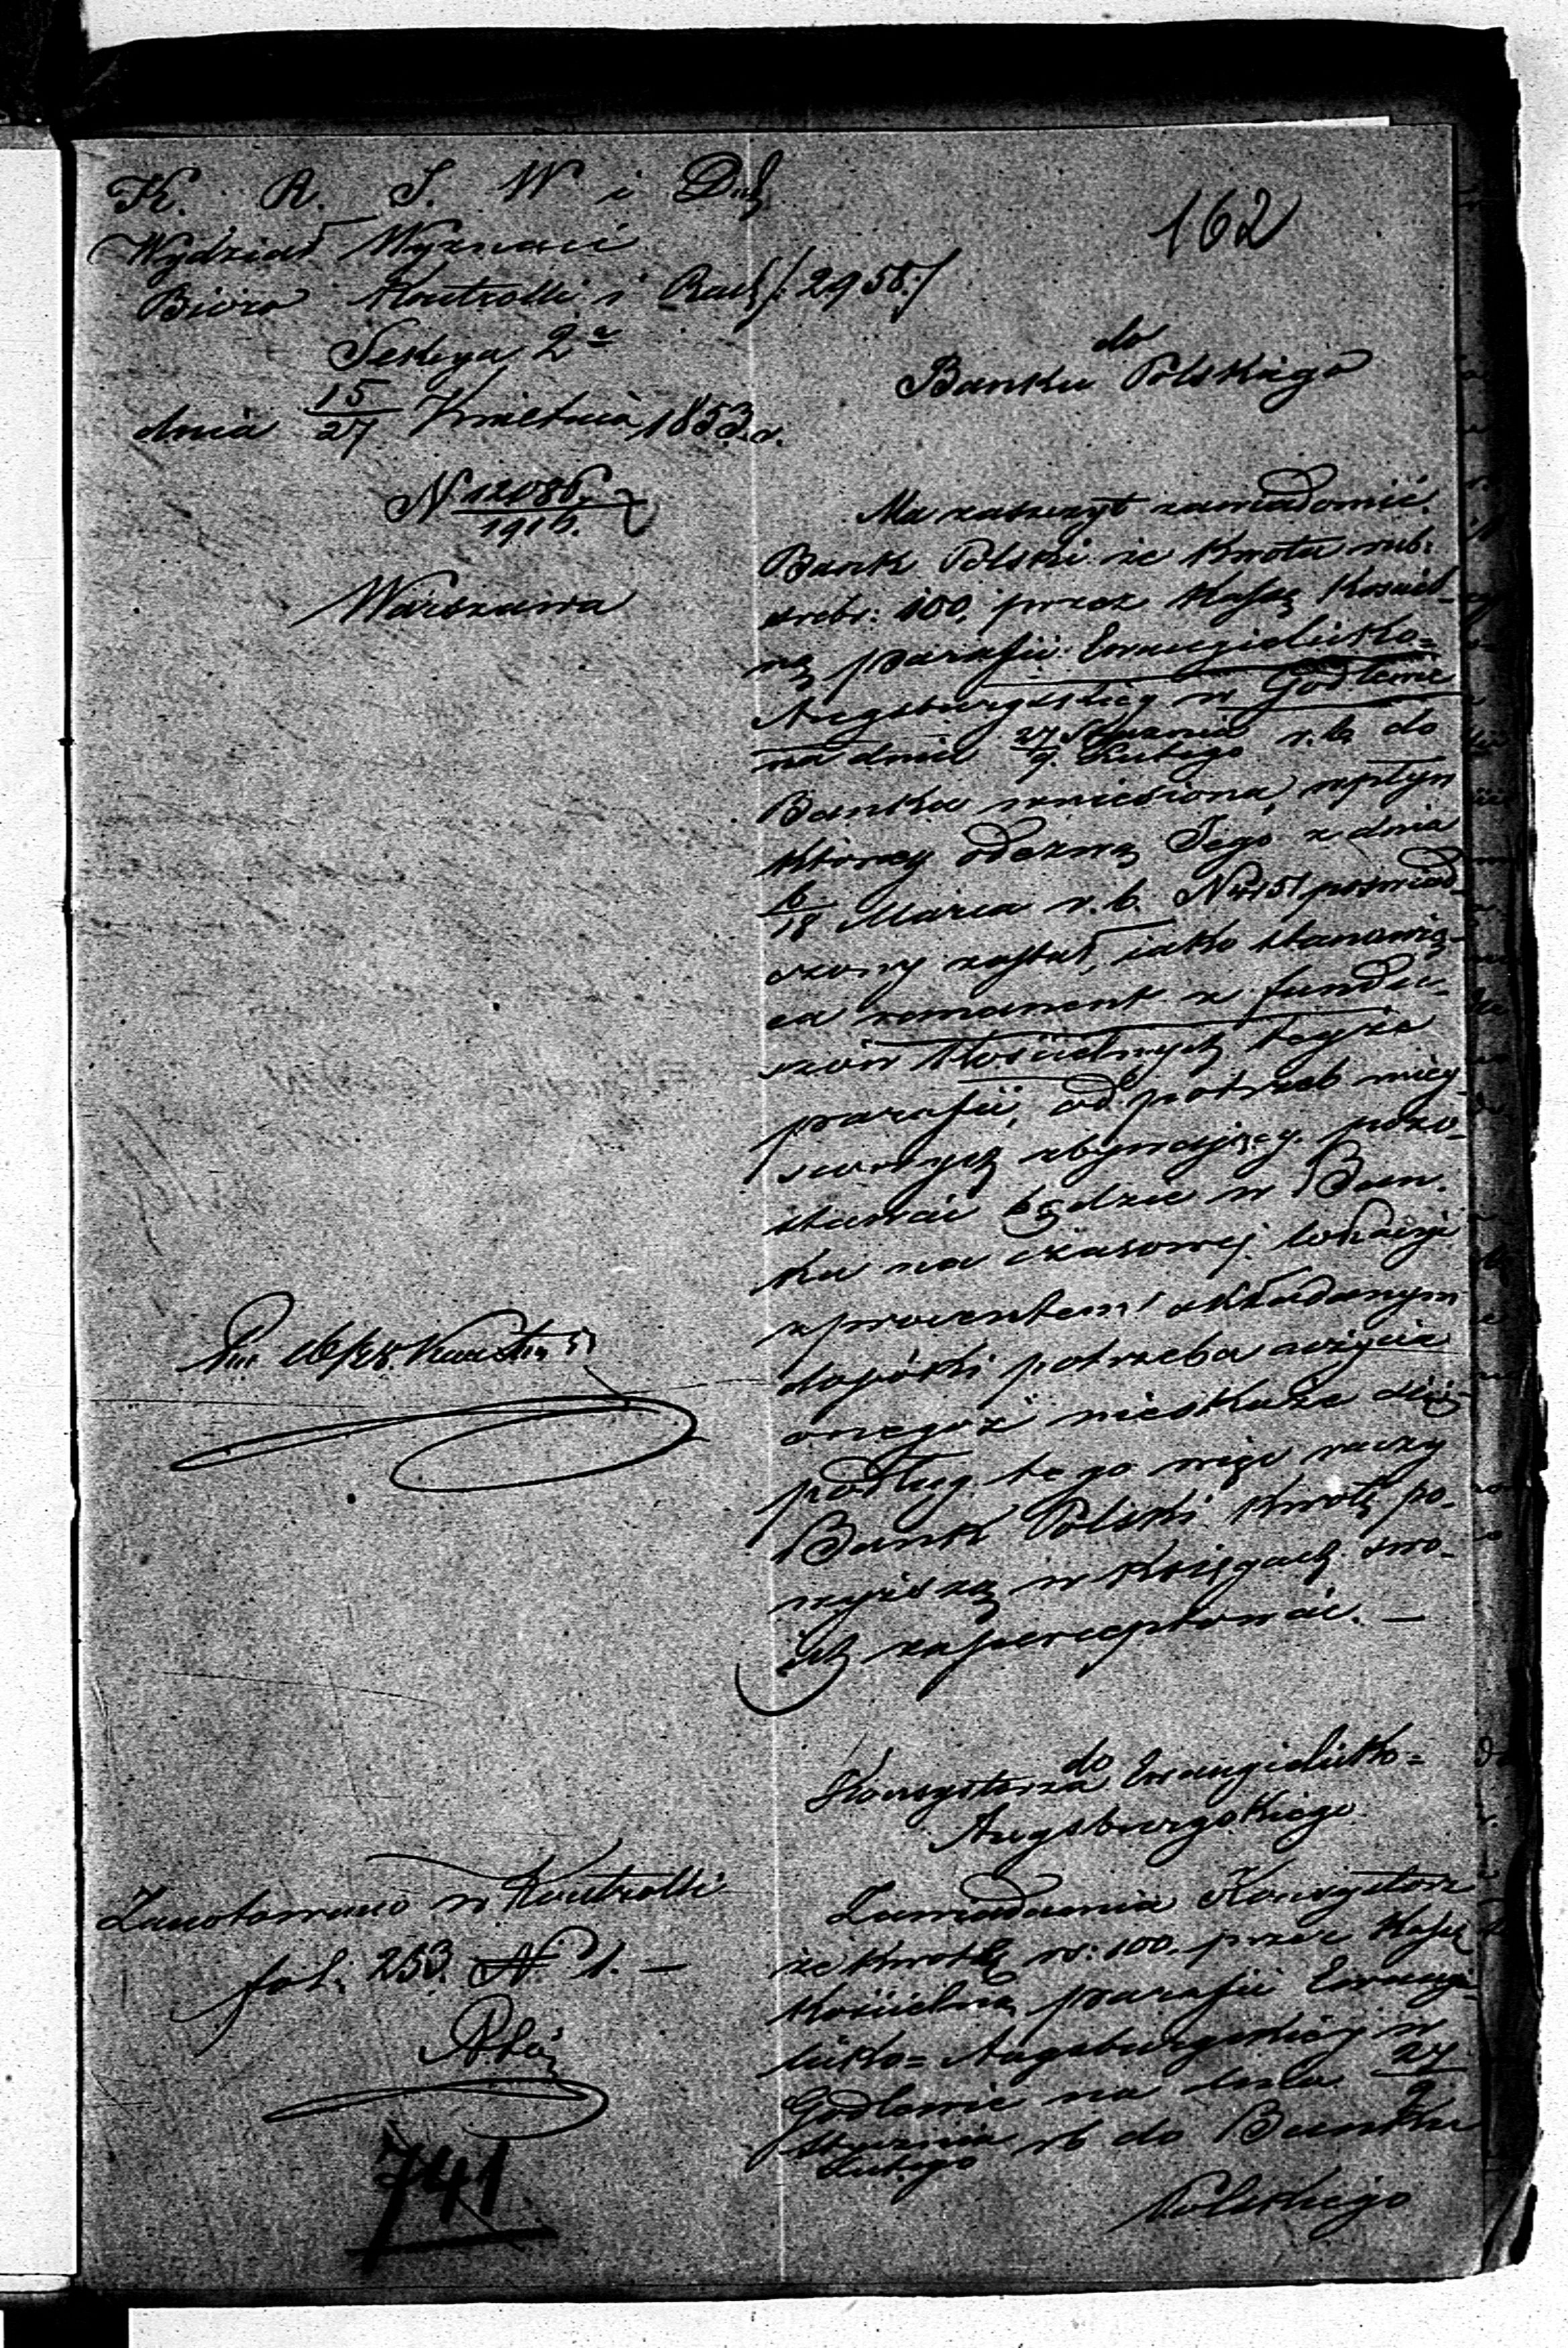 K. R. S. W i Duch
Wydział Wyznań
Biuro Kontrolli i Rach /: 2958 :/
Sekcya 2a
dnia 15/27 Kwietnia 1853 r.
N 12086
Warszawa
162
do
Banku Polskiego
Ma zaszczyt zawiadomić
Bank Polski że kwota rub:
srebr: 100. przez Kassę Kościel-
ną parafii Ewangielicko=
Augsburgskiey w Godlewie
na dniu 27 Stycznia/9 Lutego r. b. do
Banku wniesiona, wpłyn
którey odezwą Jego z dnia
6/18 Marca r. b. N poświad-
czony został, iako stanowią-
ca remanent z fundu-
szów Kościelnych teyże
parafii, od potrzeb miey-
scowych zbywaiący pozo-
stawać będzie w Ban-
ku na czasowey lokacyi
z procentem składanym
dopóki potrzeba użycia
onegoż nieokaże się
podług tego więc raczy
Bank Polski kwotę po-
wyższą w Księgach swo-
ich zapercypować. —
do
Konsystorza Ewangielicko=
Augsburgskiego
Zawiadamia Konsystorz
że kwotę rs: 100. przez Kassę
Kościelną parafii Ewangie-
licko= Augsburgskiey w
Godlewie na dniu 27/9
Stycznia/Lutego rb do Banku
Polskiego
Zanotowano w Kontrolli
fol. 253. N 1. —
741